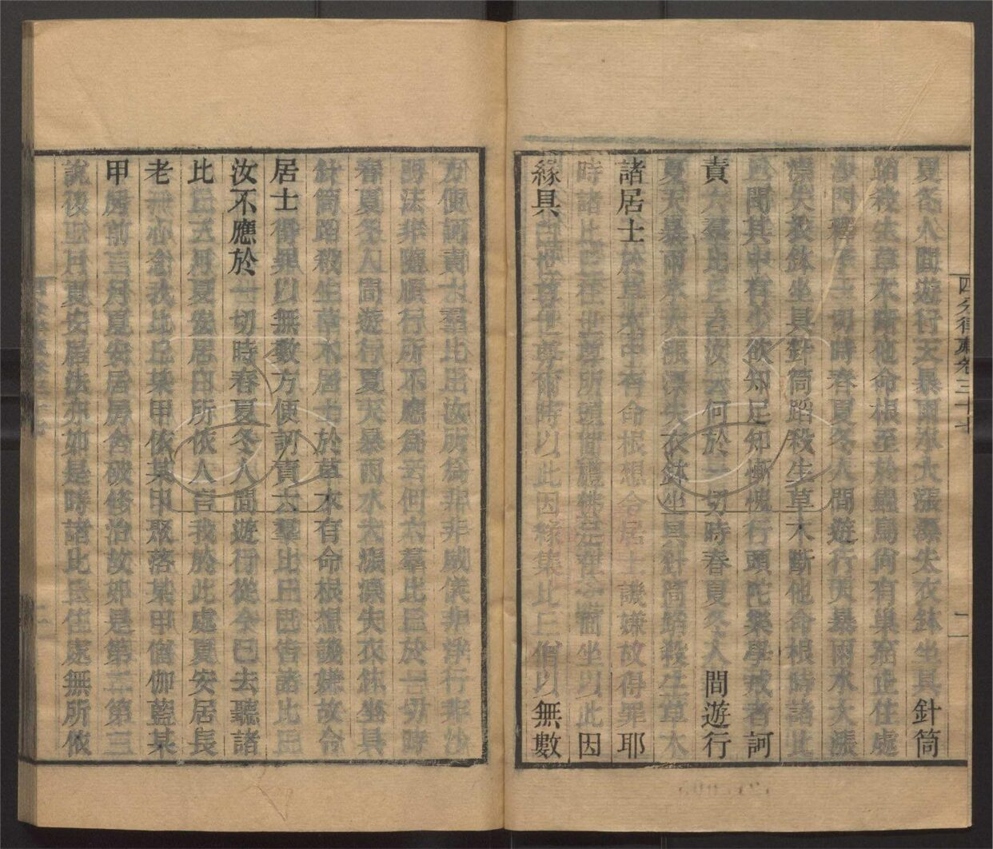 四分律藏卷三十七 二
夏冬人間遊行天暴雨水大漲漂失衣鉢坐具針筒
蹈殺生草木斷他命根至於蟲鳥尚有巢窟止住處
沙門釋子一切時春夏冬人間遊行天暴雨水大漲
漂失衣鉢坐具針筒蹈殺生草木斷他命根時諸比
丘聞其中有少欲知足知慚愧行頭陀樂學戒者訶
責六羣比丘言汝云何於一切時春夏冬人間遊行
夏天暴雨水大漲漂失衣鉢坐具針筒蹈殺生草木
諸居士於草木中有命根想令居士譏嫌故得罪耶
時諸比丘往世尊所頭面禮佛足在一面坐以此因
緣具白世尊世尊爾時以此因緣集比丘僧以無數
方便訶責六羣比丘汝所爲非非威儀非淨行非沙
門法非隨順行所不應爲云何六羣比丘於一切時
春夏冬人間遊行夏天暴雨水大漲漂失衣鉢坐具
針筒蹈殺生草木居士於草木有命根想譏嫌故令
居士得罪以無數方便訶責六羣比丘已告諸比丘
汝不應於一切時春夏冬人間遊行從今已去聽諸
比丘三月夏安居白所依人言我於此處夏安居長
老一心念我比丘某甲依某甲聚落某甲僧伽藍某
甲房前三月夏安居房舍破修治故如是第二第三
說後三月夏安居法亦如是時諸比丘住處無所依